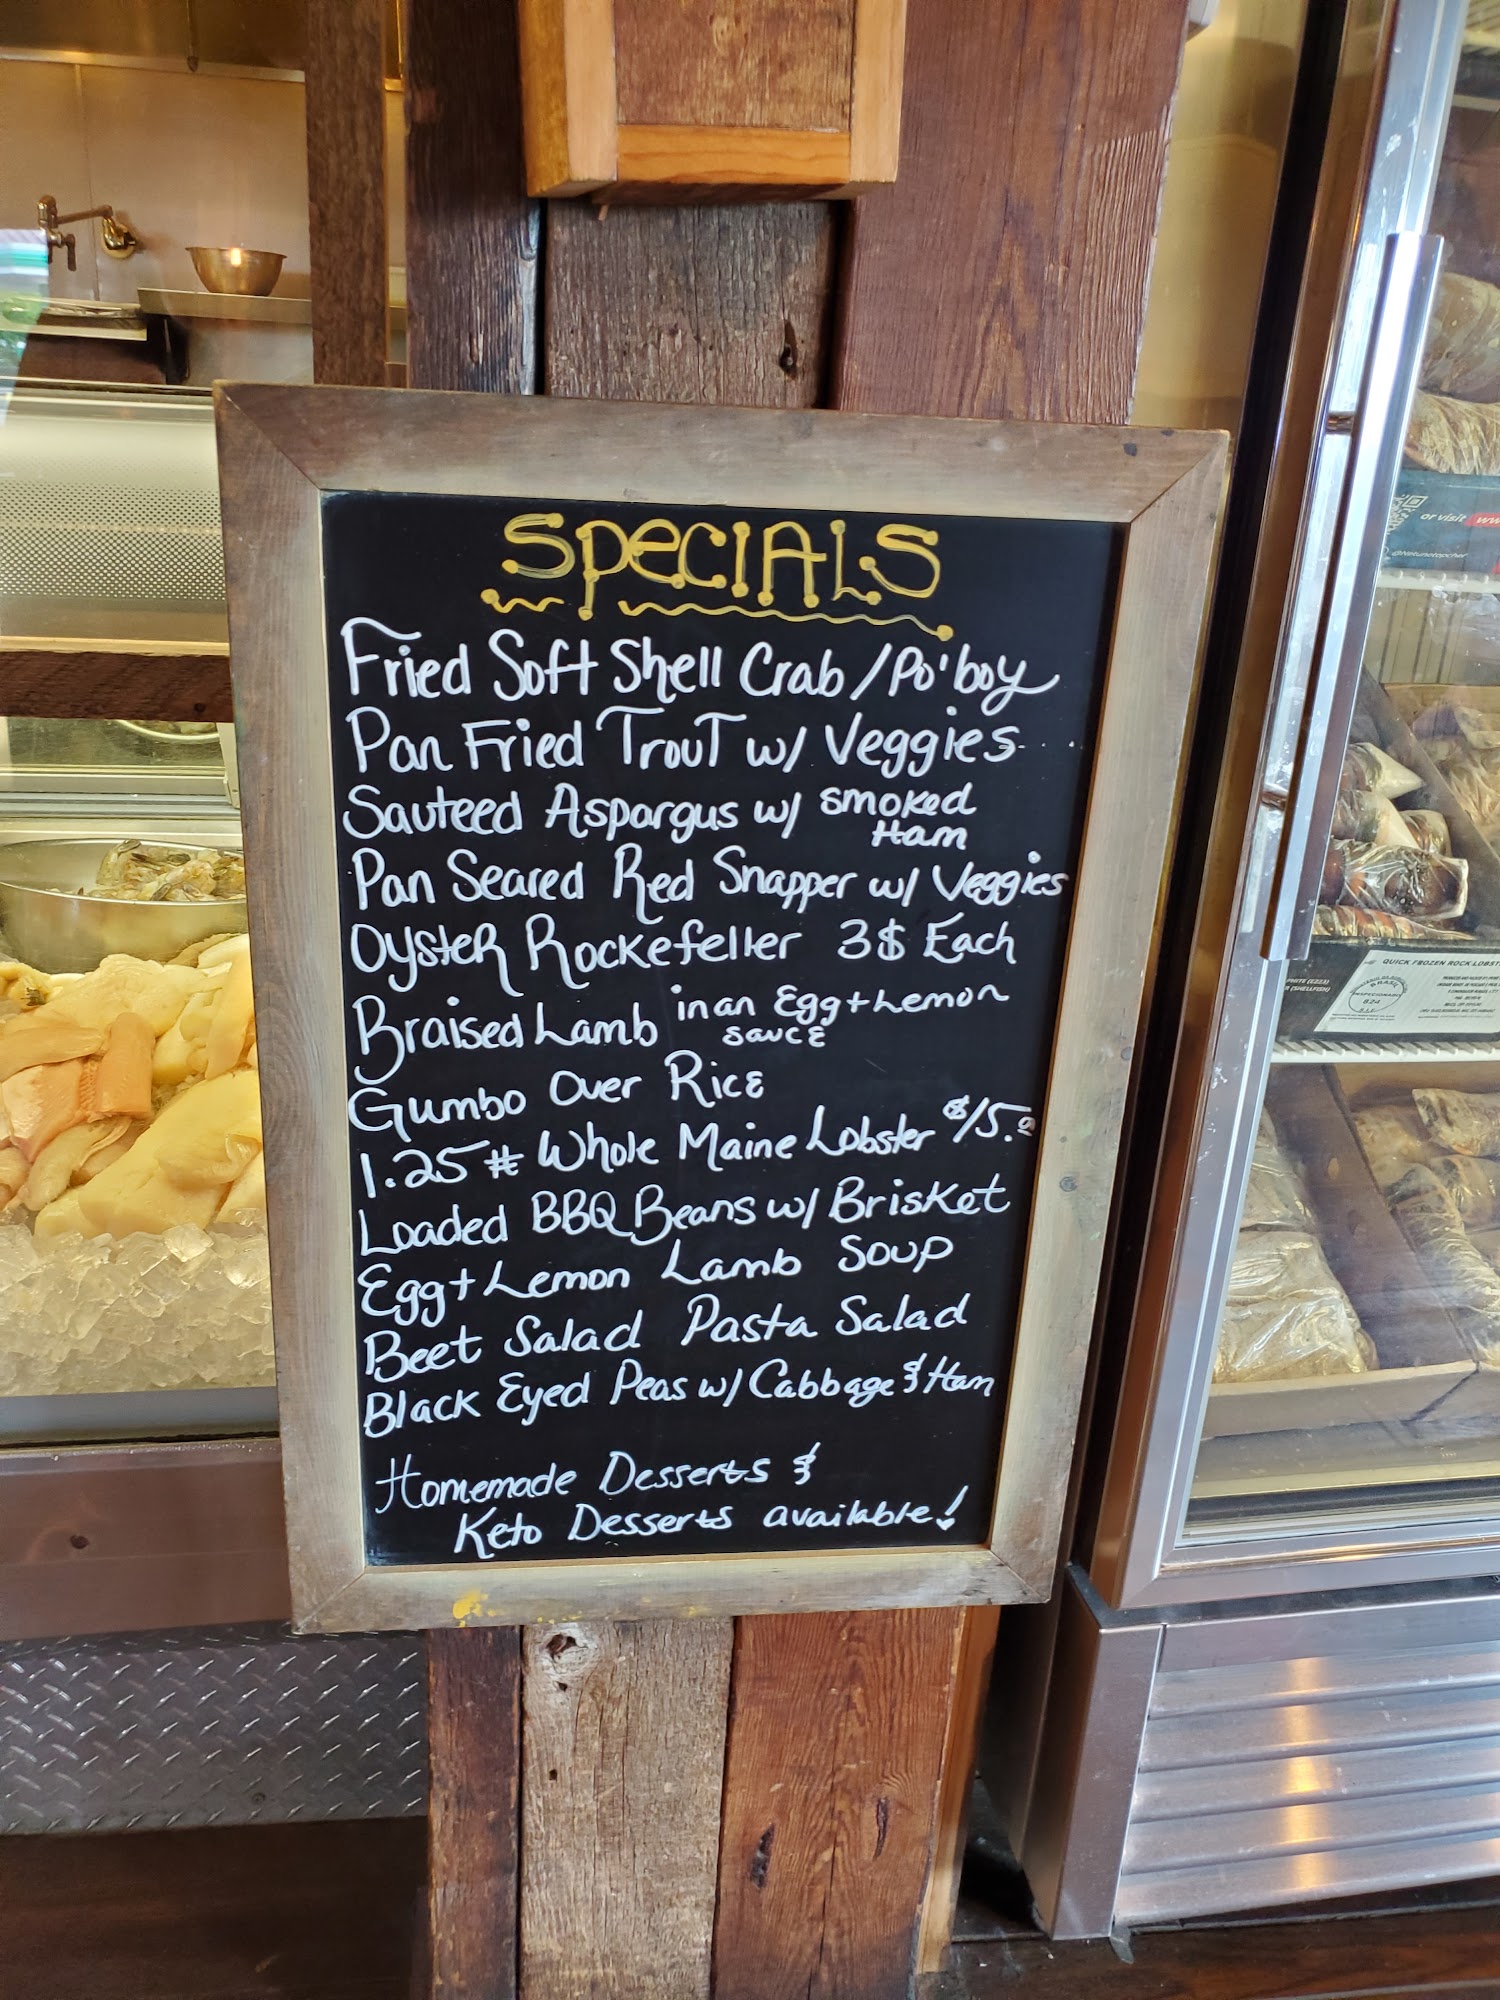 Specials
Fried Soft Shell Crab / Po'boy
Pan Fried Trout w/ Veggies
Sauteed Aspargus w/ smoked
Ham
Pan Seared Red Snapper w/ Veggies
Oyster Rockefeller 3$ Each
Braised Lamb in an Egg + Lemon
sauce
Gumbo Over Rice
1.25 # Whole Maine Lobster $15.
Loaded BBQ Beans w/ Brisket
Egg + Lemon Lamb Soup
Beet Salad Pasta Salad
Black Eyed Peas w/ Cabbage & Ham
Homemade Desserts &
Keto Desserts available!
or visit
QUICK FROZEN ROCK LOBST
BRASIL
INSPECIONADO
824
S.I.F.
(SHELLFISH)